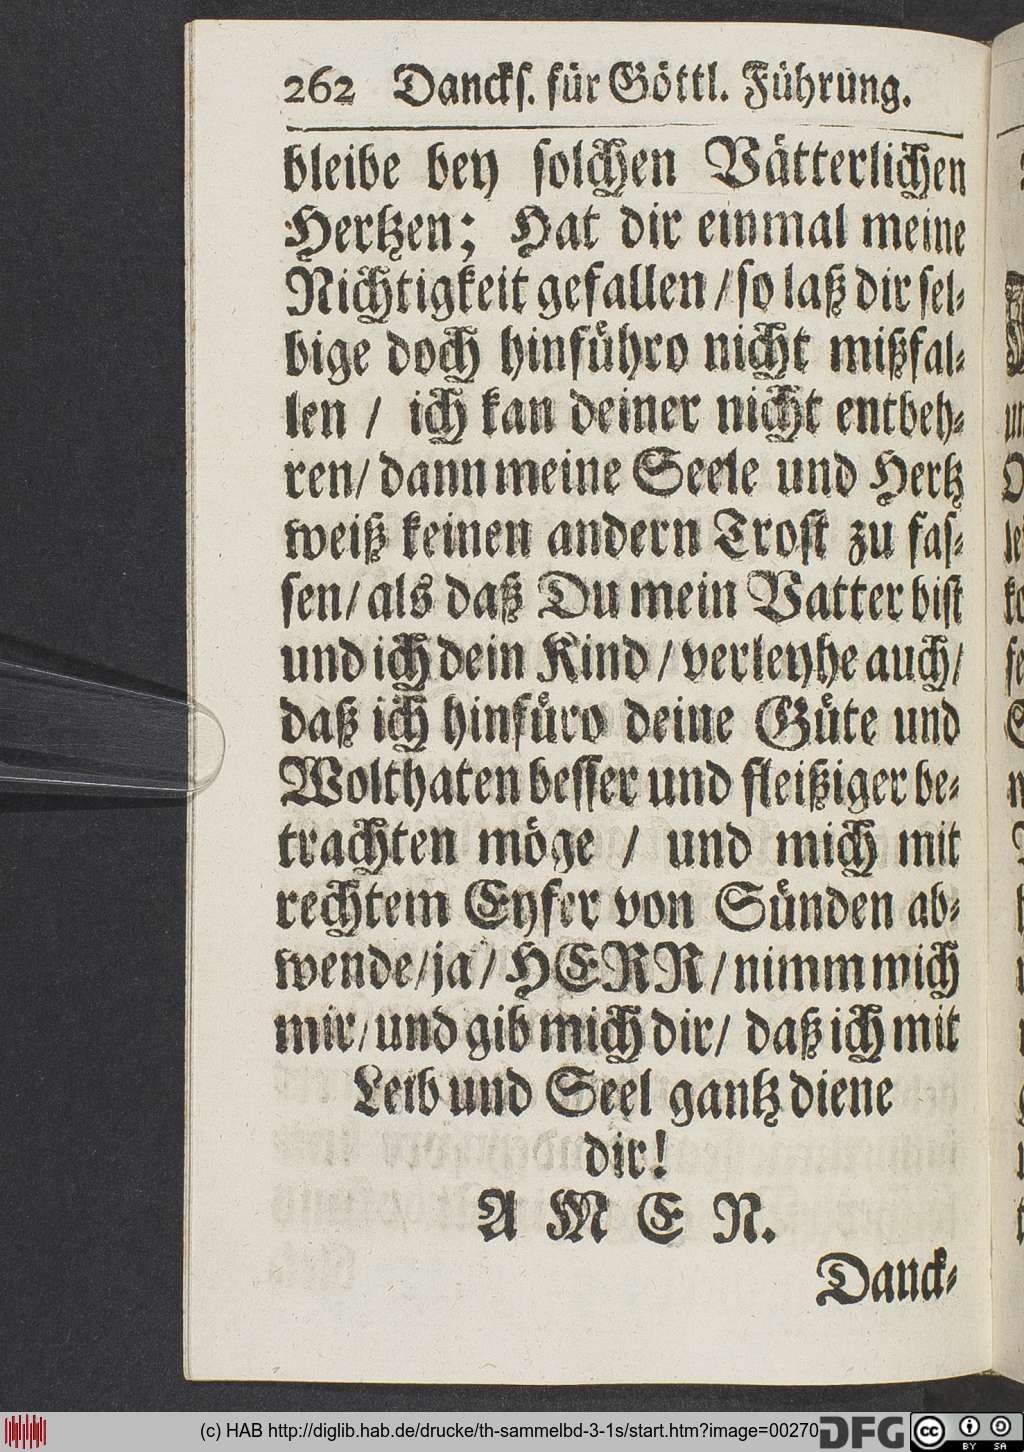 262 Dancks. für Göttl. Führung.
bleibe bey solchen Vätterlichen
Hertzen; Hat dir einmal meine
Nichtigkeit gefallen / so laß dir sel-
bige doch hinführo nicht mißfal-
len / ich kan deiner nicht entbeh-
ren / dann meine Seele und Hertz
weiß keinen andern Trost zu fas-
sen / als daß Du mein Vatter bist
und ich dein Kind / verleyhe auch /
daß ich hinfüro deine Güte und
Wolthaten besser und fleißiger be-
trachten möge / und mich mit
rechtem Eyfer von Sünden ab-
wende / ja / HERR / nimm mich
mir / und gib mich dir / daß ich mit
Leib und Seel gantz diene
dir!
A M E N.
Danck-
(c) HAB http://diglib.hab.de/drucke/th-sammelbd-3-1s/start.htm?image=00270
DFG
cc BY SA